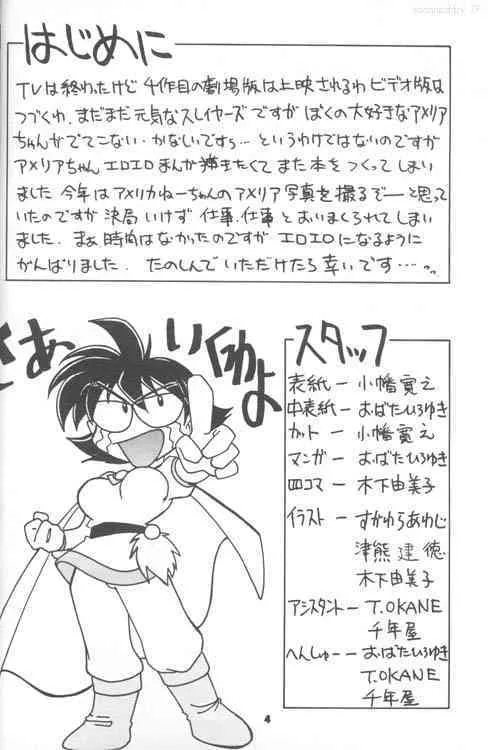 はじめに
TVは終わったけど 千作目の劇場版は上映されるわ ビデオ版は
つづくわ. まだまだ 元気なスレイヤーズ ですが ぼくの大好きな アメリア
ちゃんが でてこない・かなしいですぅ… というわけではないのですが
アメリアちゃん エロエロ まんが 描きたくて また 本を つくって しまい
ました 今年は アメリカねーちゃんの アメリア 写真を 撮るでーと思って
いたのですが 決局 いけず 仕事.仕事 と おいまくられて しまい
ました. まぁ 時間は なかったのですが エロエロ になるように
がんばりました. たのしんで いただけたら 幸いです….
さあ いくわよ
スタッフ
表紙ー 小幡寛之
中表紙ー おばたひろゆき
カットー 小幡寛之
マンガー おばたひろゆき
四コマー 木下由美子
イラストー すがわらあわじ
津熊建徳
木下由美子
アシスタントー T.OKANE
千年屋
へんしゅーー おばたひろゆき
T.OKANE
千年屋
4